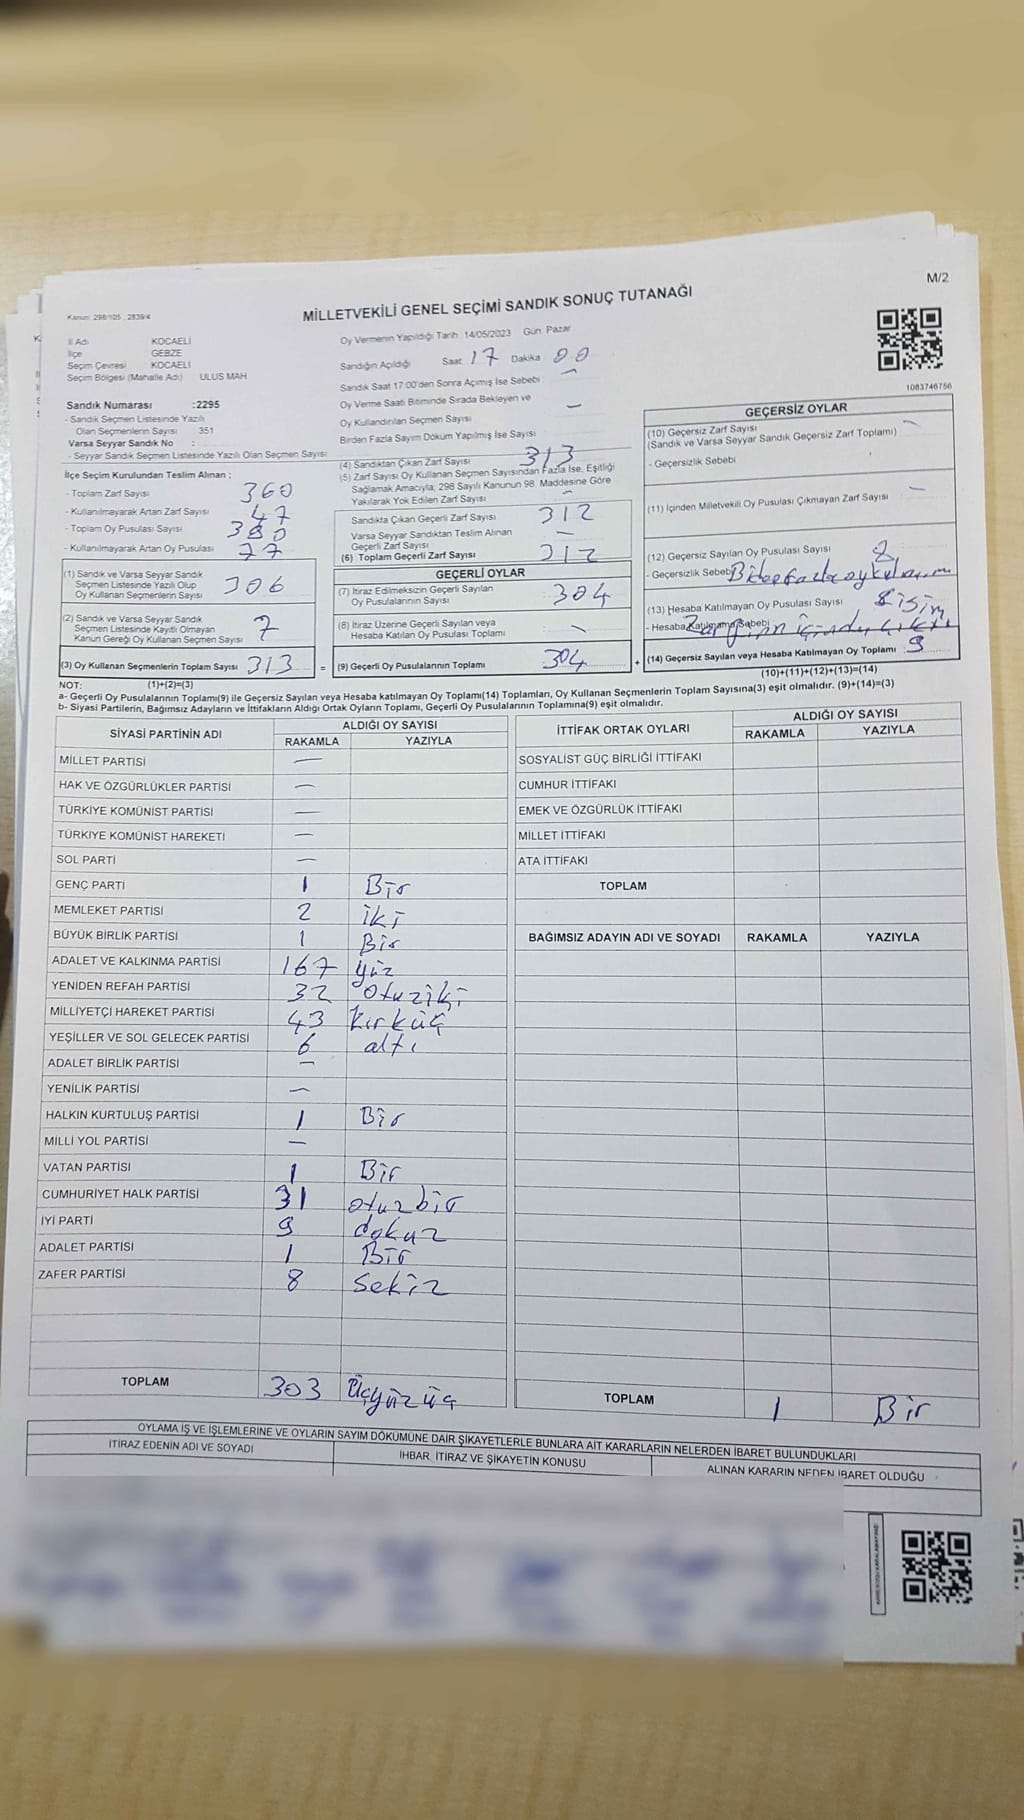 M/2
Kanun: 298/105 , 2839/4
MİLLETVEKİLİ GENEL SEÇİMİ SANDIK SONUÇ TUTANAĞI
1083746756
İl Adı KOCAELİ
İlçe GEBZE
Seçim Çevresi KOCAELİ
Seçim Bölgesi (Mahalle Adı) ULUS MAH
Sandık Numarası :2295
- Sandık Seçmen Listesinde Yazılı
Olan Seçmenlerin Sayısı 351
Varsa Seyyar Sandık No :
- Seyyar Sandık Seçmen Listesinde Yazılı Olan Seçmen Sayısı
İlçe Seçim Kurulundan Teslim Alınan ;
- Toplam Zarf Sayısı 360
- Kullanılmayarak Artan Zarf Sayısı 47
- Toplam Oy Pusulası Sayısı 380
- Kullanılmayarak Artan Oy Pusulası 77
(1) Sandık ve Varsa Seyyar Sandık
Seçmen Listesinde Yazılı Olup
Oy Kullanan Seçmenlerin Sayısı 306
(2) Sandık ve Varsa Seyyar Sandık
Seçmen Listesinde Kayıtlı Olmayan
Kanun Gereği Oy Kullanan Seçmen Sayısı 7
(3) Oy Kullanan Seçmenlerin Toplam Sayısı 313 =
Oy Vermenin Yapıldığı Tarih: 14/05/2023 Gün: Pazar
Sandığın Açıldığı Saat 17 Dakika 00
Sandık Saat 17:00'den Sonra Açımış İse Sebebi —
Oy Verme Saati Bitiminde Sırada Bekleyen ve
Oy Kullandırılan Seçmen Sayısı —
Birden Fazla Sayım Döküm Yapılmış İse Sayısı
(4) Sandıktan Çıkan Zarf Sayısı 313
(5) Zarf Sayısı Oy Kullanan Seçmen Sayısından Fazla İse, Eşitliği
Sağlamak Amacıyla, 298 Sayılı Kanunun 98. Maddesine Göre
Yakılarak Yok Edilen Zarf Sayısı —
Sandıkta Çıkan Geçerli Zarf Sayısı 312
Varsa Seyyar Sandıktan Teslim Alınan
Geçerli Zarf Sayısı —
(6) Toplam Geçerli Zarf Sayısı 312
GEÇERLİ OYLAR
(7) İtiraz Edilmeksizin Geçerli Sayılan
Oy Pusulalarının Sayısı 304
(8) İtiraz Üzerine Geçerli Sayılan veya
Hesaba Katılan Oy Pusulası Toplamı —
(9) Geçerli Oy Pusulalarının Toplamı 304 +
GEÇERSİZ OYLAR
(10) Geçersiz Zarf Sayısı —
(Sandık ve Varsa Seyyar Sandık Geçersiz Zarf Toplamı)
- Geçersizlik Sebebi
(11) İçinden Milletvekili Oy Pusulası Çıkmayan Zarf Sayısı —
(12) Geçersiz Sayılan Oy Pusulası Sayısı 8
- Geçersizlik Sebebi
(13) Hesaba Katılmayan Oy Pusulası Sayısı
- Hesaba Katılmama Sebebi
(14) Geçersiz Sayılan veya Hesaba Katılmayan Oy Toplamı 9
(10)+(11)+(12)+(13)=(14)
NOT: (1)+(2)=(3)
a- Geçerli Oy Pusulalarının Toplamı(9) ile Geçersiz Sayılan veya Hesaba katılmayan Oy Toplamı(14) Toplamları, Oy Kullanan Seçmenlerin Toplam Sayısına(3) eşit olmalıdır. (9)+(14)=(3)
b- Siyasi Partilerin, Bağımsız Adayların ve İttifakların Aldığı Ortak Oyların Toplamı, Geçerli Oy Pusulalarının Toplamına(9) eşit olmalıdır.
SİYASİ PARTİNİN ADI ALDIĞI OY SAYISI
RAKAMLA YAZIYLA
MİLLET PARTİSİ —
HAK VE ÖZGÜRLÜKLER PARTİSİ —
TÜRKİYE KOMÜNİST PARTİSİ —
TÜRKİYE KOMÜNİST HAREKETİ —
SOL PARTİ —
GENÇ PARTİ 1 Bir
MEMLEKET PARTİSİ 2 iki
BÜYÜK BİRLİK PARTİSİ 1 Bir
ADALET VE KALKINMA PARTİSİ 167 yüz
YENİDEN REFAH PARTİSİ 32 otuziki
MİLLİYETÇİ HAREKET PARTİSİ 43 kırküç
YEŞİLLER VE SOL GELECEK PARTİSİ 6 altı
ADALET BİRLİK PARTİSİ —
YENİLİK PARTİSİ —
HALKIN KURTULUŞ PARTİSİ 1 Bir
MİLLİ YOL PARTİSİ —
VATAN PARTİSİ 1 Bir
CUMHURİYET HALK PARTİSİ 31 otuzbir
İYİ PARTİ 9 dokuz
ADALET PARTİSİ 1 Bir
ZAFER PARTİSİ 8 sekiz
TOPLAM 303 Üçyüzüç
İTTİFAK ORTAK OYLARI ALDIĞI OY SAYISI
RAKAMLA YAZIYLA
SOSYALİST GÜÇ BİRLİĞİ İTTİFAKI
CUMHUR İTTİFAKI
EMEK VE ÖZGÜRLÜK İTTİFAKI
MİLLET İTTİFAKI
ATA İTTİFAKI
TOPLAM
BAĞIMSIZ ADAYIN ADI VE SOYADI RAKAMLA YAZIYLA
TOPLAM 1 Bir
OYLAMA İŞ VE İŞLEMLERİNE VE OYLARIN SAYIM DÖKÜMÜNE DAİR ŞİKAYETLERLE BUNLARA AİT KARARLARIN NELERDEN İBARET BULUNDUKLARI
İTİRAZ EDENİN ADI VE SOYADI İHBAR, İTİRAZ VE ŞİKAYETİN KONUSU ALINAN KARARIN NEDEN İBARET OLDUĞU